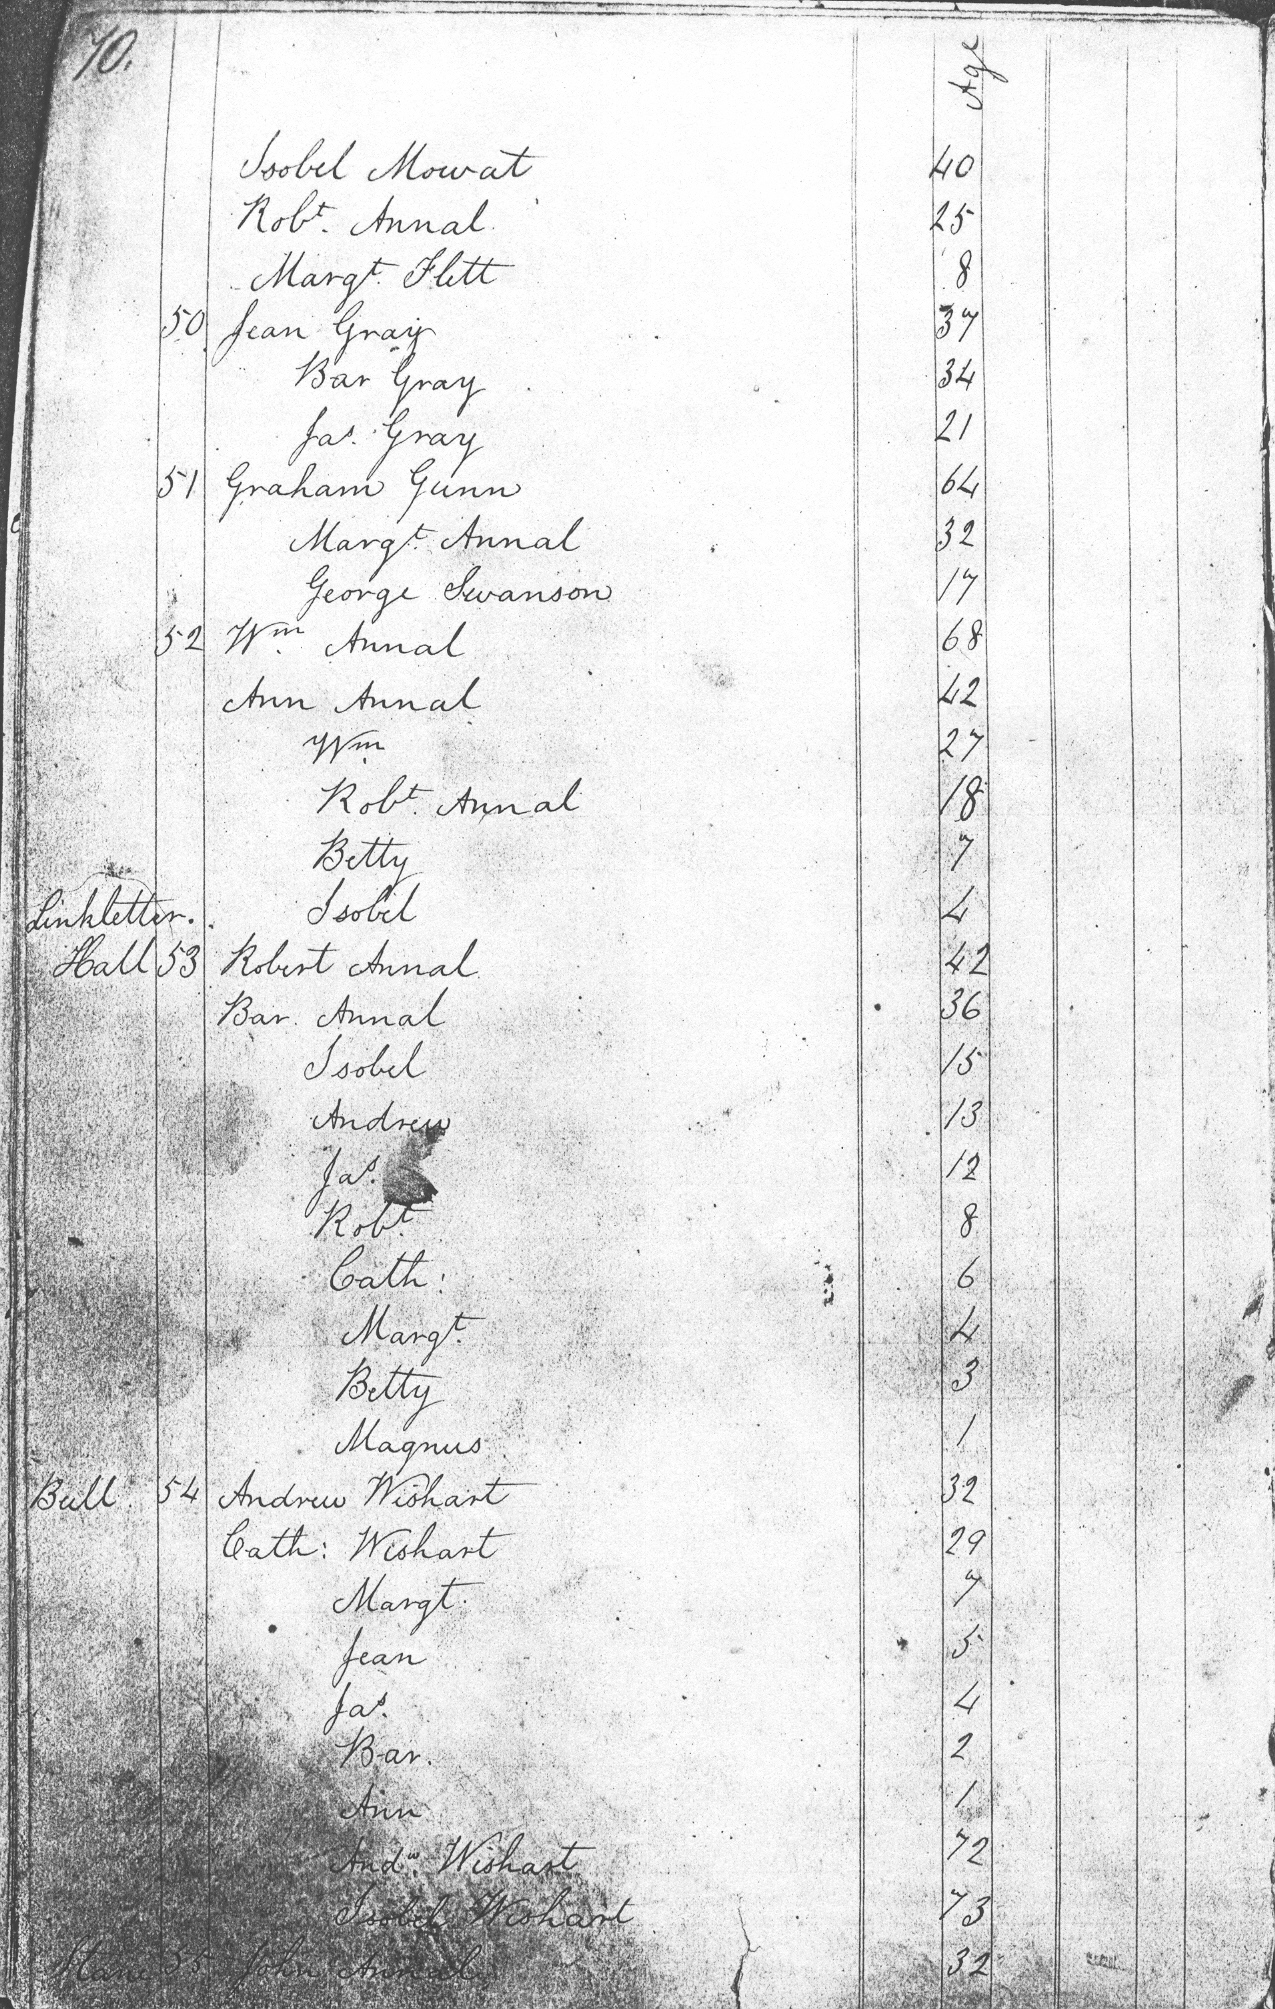 70.
Age
Isobel Mowat 40
Robt. Annal 25
Margt. Flett 8
50 Jean Gray 37
Bar Gray 34
Jas. Gray 21
51 Graham Gunn 64
Margt. Annal 32
George Swanson 17
52 Wm. Annal 68
Ann Annal 42
Wm. 27
Robt. Annal 18
Betty 7
Linkletter. Isobel 4
Hall 53 Robert Annal 42
Bar. Annal 36
Isobel 15
Andrew 13
Jas. 12
Robt. 8
Cath: 6
Margt. 4
Betty 3
Magnus 1
Bull 54 Andrew Wishart 32
Cath: Wishart 29
Margt. 7
Jean 5
Jas. 4
Bar. 2
Ann 1
Andw. Wishart 72
Isobel Wishart 73
55 John Annal 32